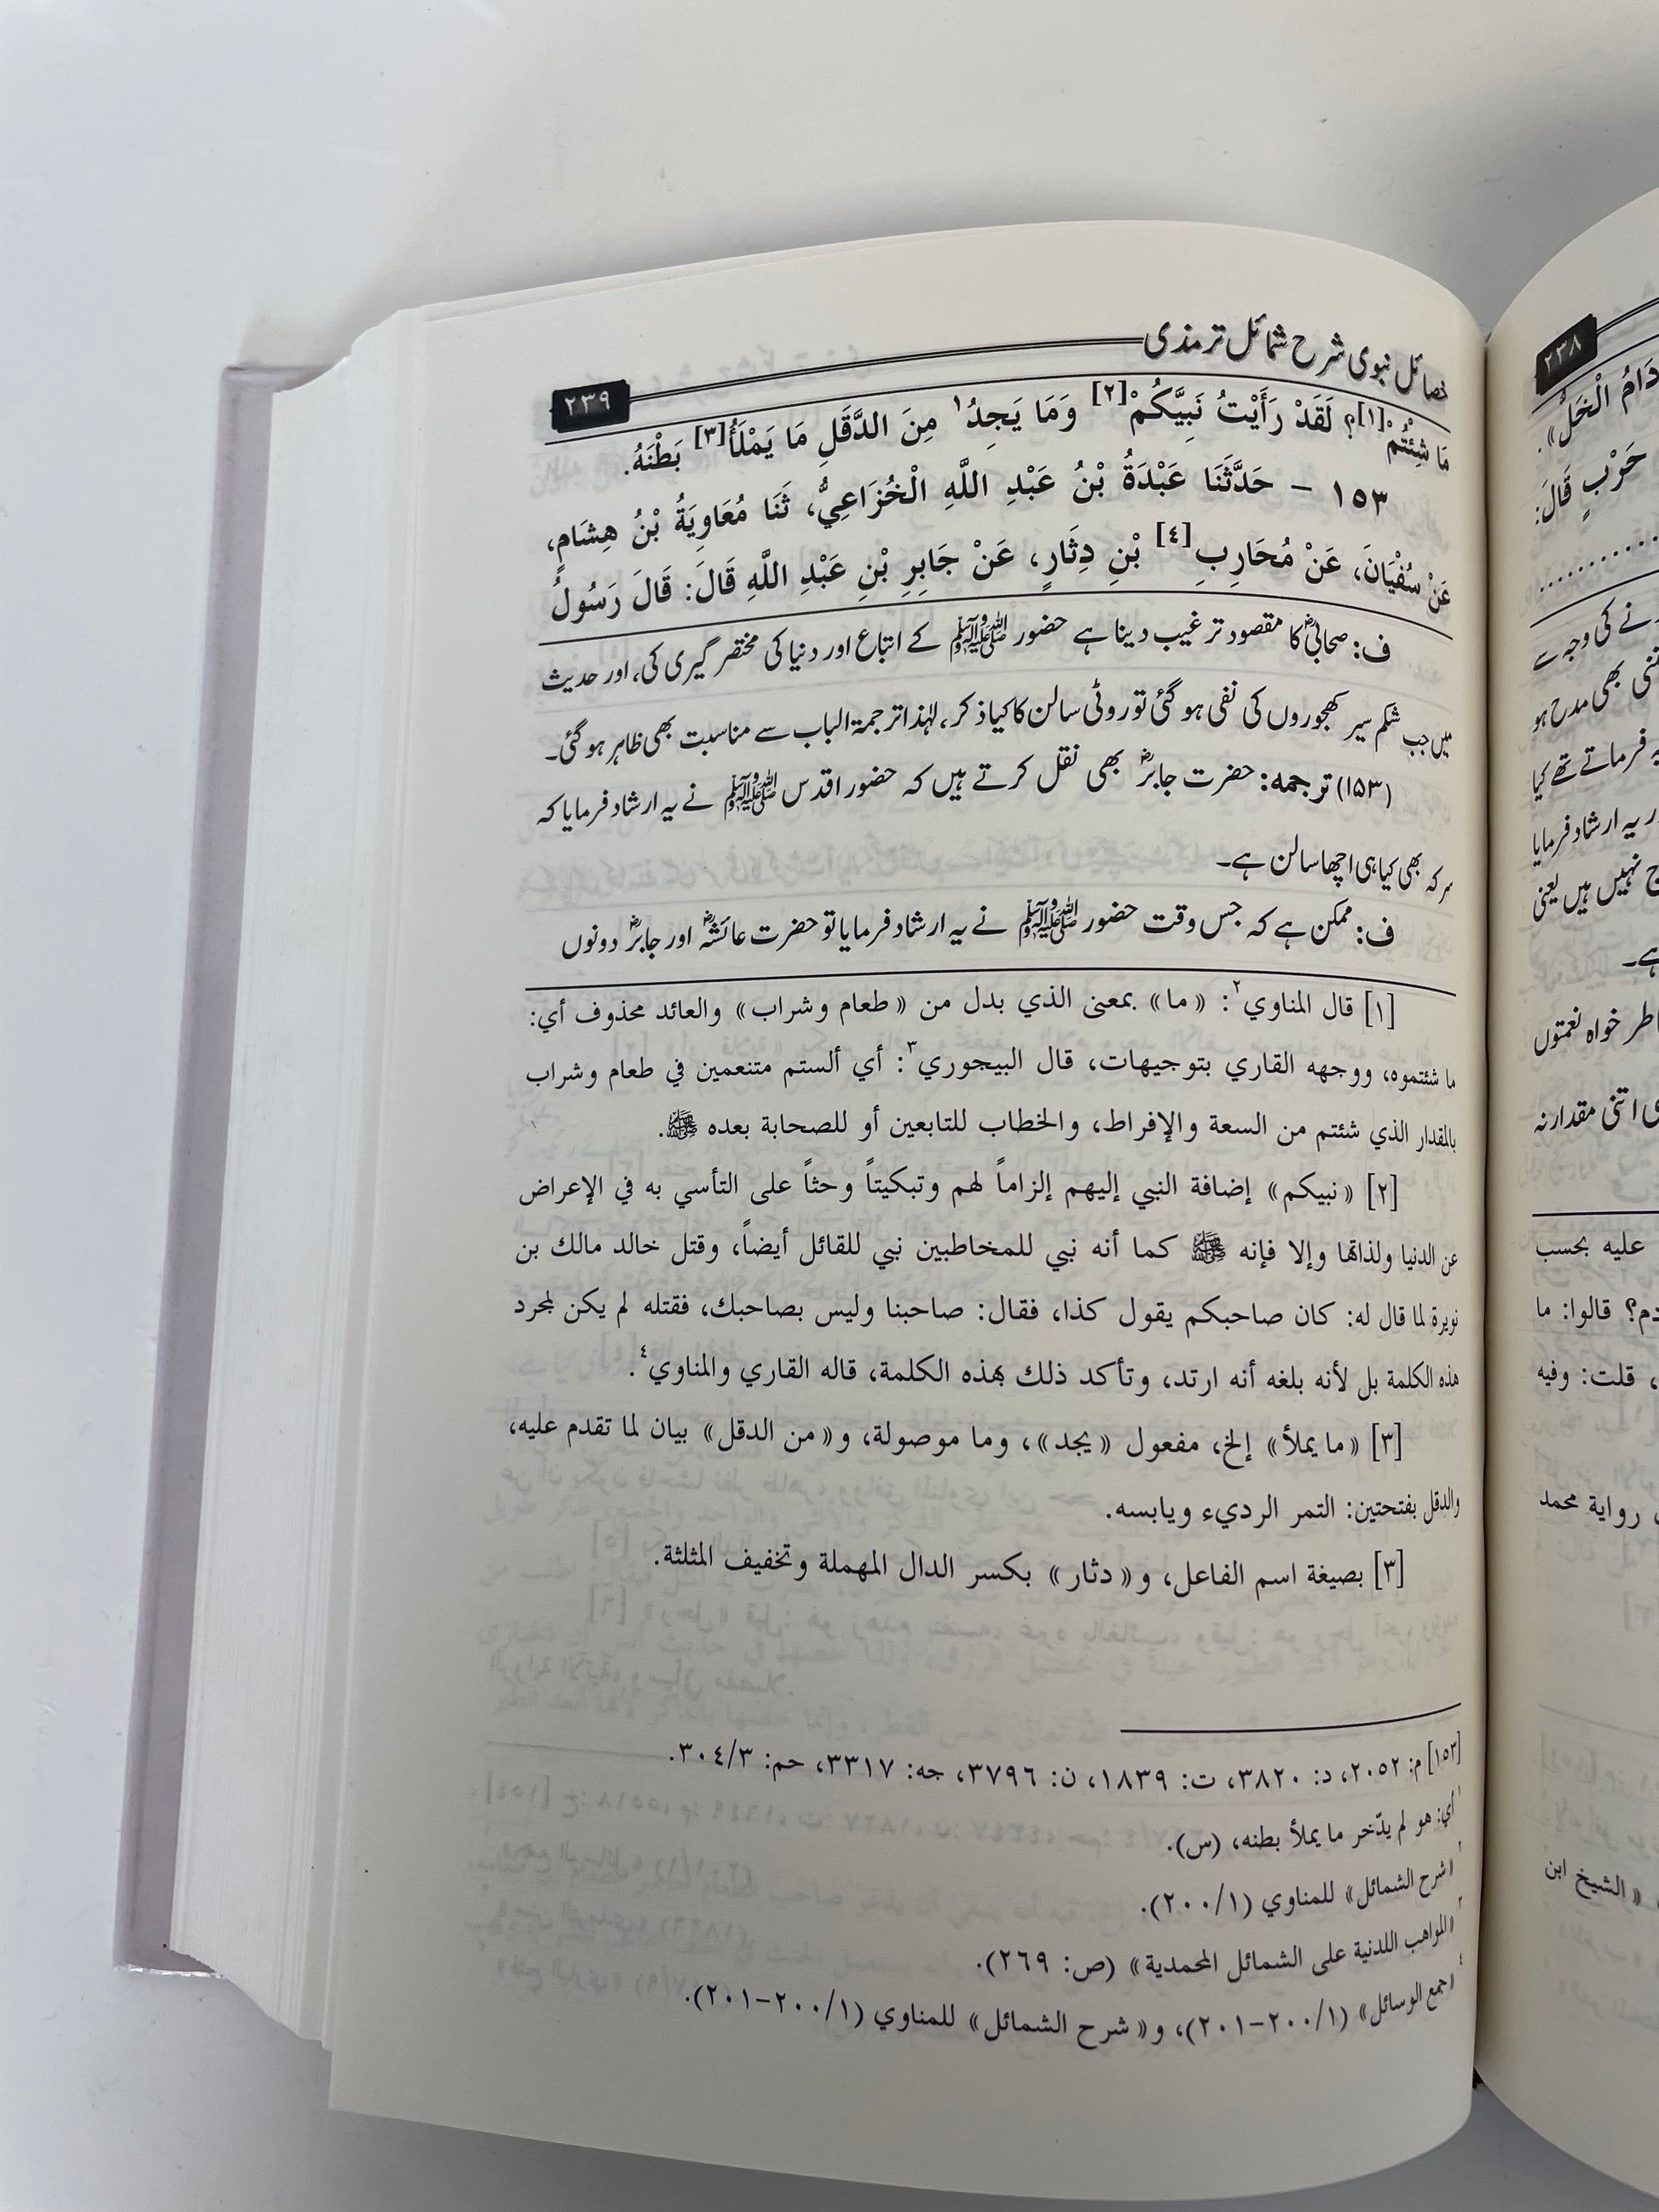 خصائل نبوی شرح شمائل ترمذی
٢٣٩
مَا شِئْتُمْ[١]؟ لَقَدْ رَأَيْتُ نَبِيَّكُمْ[٢] وَمَا يَجِدُ١ مِنَ الدَّقَلِ مَا يَمْلَأُ[٣] بَطْنَهُ.
١٥٣ – حَدَّثَنَا عَبْدَةُ بْنُ عَبْدِ اللَّهِ الْخُزَاعِيُّ، ثَنَا مُعَاوِيَةُ بْنُ هِشَامٍ،
عَنْ سُفْيَانَ، عَنْ مُحَارِبِ[٤] بْنِ دِثَارٍ، عَنْ جَابِرِ بْنِ عَبْدِ اللَّهِ قَالَ: قَالَ رَسُولُ
ف: صحابیؓ کا مقصود ترغیب دینا ہے حضور ﷺ کے اتباع اور دنیا کی مختصر گیری کی، اور حدیث
میں جب شکم سیر کھجوروں کی نفی ہو گئی تو روٹی سالن کا کیا ذکر، لہٰذا ترجمۃ الباب سے مناسبت بھی ظاہر ہو گئی۔
(۱۵۳) ترجمہ: حضرت جابرؓ بھی نقل کرتے ہیں کہ حضور اقدس ﷺ نے یہ ارشاد فرمایا کہ
سرکہ بھی کیا ہی اچھا سالن ہے۔
ف: ممکن ہے کہ جس وقت حضور ﷺ نے یہ ارشاد فرمایا تو حضرت عائشہؓ اور جابرؓ دونوں
[١] قال المناوي٢: «ما» بمعنى الذي بدل من «طعام وشراب» والعائد محذوف أي:
ما شئتموه، ووجهه القاري بتوجيهات، قال البيجوري٣: أي ألستم متنعمين في طعام وشراب
بالمقدار الذي شئتم من السعة والإفراط، والخطاب للتابعين أو للصحابة بعده ﷺ.
[٢] «نبيكم» إضافة النبي إليهم إلزاماً لهم وتبكيتاً وحثاً على التأسي به في الإعراض
عن الدنيا ولذاتها وإلا فإنه ﷺ كما أنه نبي للمخاطبين نبي للقائل أيضاً، وقتل خالد مالك بن
نويرة لما قال له: كان صاحبكم يقول كذا، فقال: صاحبنا وليس بصاحبك، فقتله لم يكن لمجرد
هذه الكلمة بل لأنه بلغه أنه ارتد، وتأكد ذلك بهذه الكلمة، قاله القاري والمناوي٤.
[٣] «ما يملأ» إلخ، مفعول «يجد»، وما موصولة، و«من الدقل» بيان لما تقدم عليه،
والدقل بفتحتين: التمر الرديء ويابسه.
[٣] بصيغة اسم الفاعل، و«دثار» بكسر الدال المهملة وتخفيف المثلثة.
[١٥٣] م: ٢٠٥٢، د: ٣٨٢٠، ت: ١٨٣٩، ن: ٣٧٩٦، جه: ٣٣١٧، حم: ٣٠٤/٣.
١ أي: هو لم يدّخر ما يملأ بطنه، (س).
٢ «شرح الشمائل» للمناوي (٢٠٠/١).
٣ «المواهب اللدنية على الشمائل المحمدية» (ص: ٢٦٩).
٤ «جمع الوسائل» (٢٠٠/١-٢٠١)، و«شرح الشمائل» للمناوي (٢٠٠/١-٢٠١).
٢٣٨
دَامُ الْخَلُّ».
حَرْبٍ قَالَ:
نے کی وجہ سے
بھی مدح ہو
فرماتے تھے کیا
یہ ارشاد فرمایا
نہیں ہیں یعنی
ہے۔
خواہ نعمتوں
اتنی مقدار نہ
عليه بحسب
قالوا: ما
، قلت: وفيه
رواية محمد
«الشيخ ابن